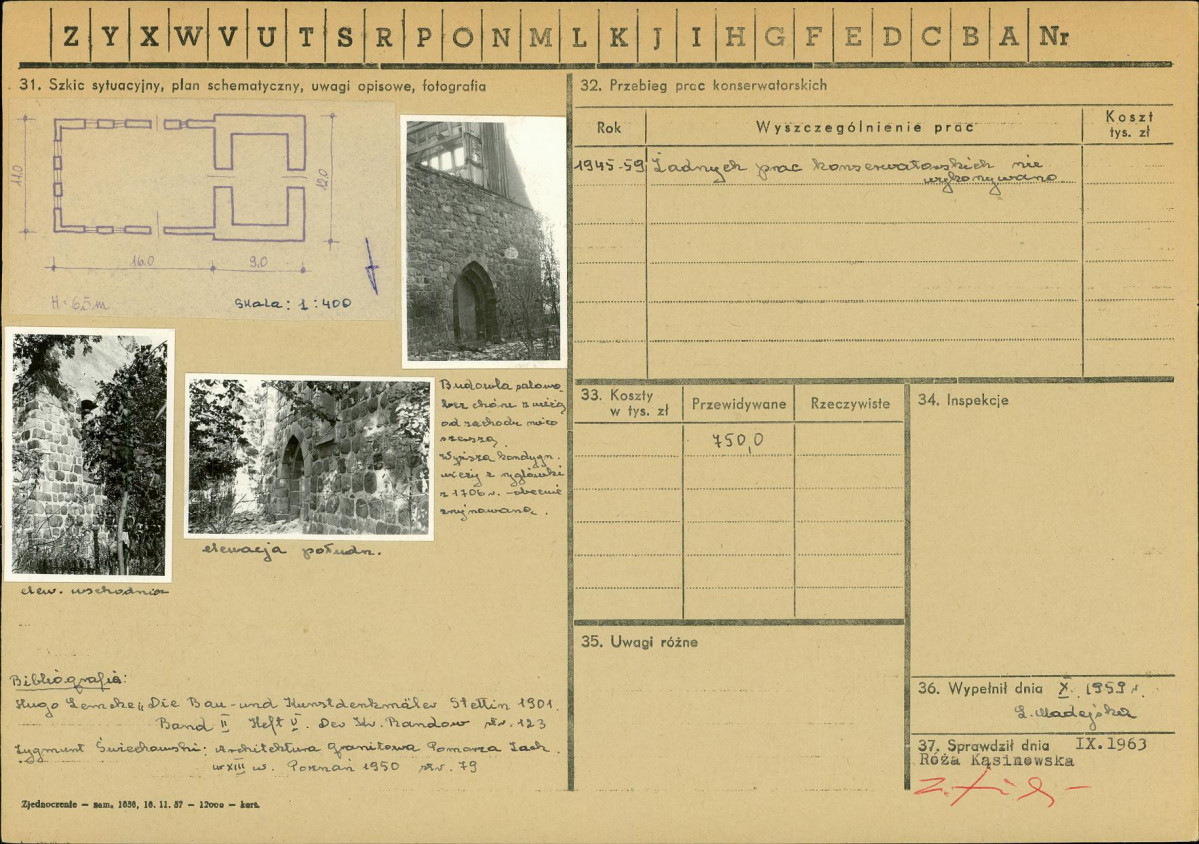 Z Y X W V U T S R P O N M L K J I H G F E D C B A Nr
31. Szkic sytuacyjny, plan schematyczny, uwagi opisowe, fotografia
11,0
12,0
16,0
9,0
H. 6,5 m
Skala: 1:400
Budowla salowa
bez chóru z wieżą
od zachodu nieco
szerszą.
Wyższa kondygn.
wieży z ryglówki
z 1706 r. obecnie
zrujnowana.
elew. wschodnia
elewacja połudn.
Bibliografia:
Hugo Lemcke „Die Bau- und Kunstdenkmäler Stettin 1901.
Band II Heft V. Der Kr. Randow str. 123
Zygmunt Świechowski: Architektura granitowa Pomorza Zach.
w XIII w. Poznań 1950 str. 79
Zjednoczenie — zam. 1636, 16. 11. 57 — 12000 — kart.
32. Przebieg prac konserwatorskich
Rok
Wyszczególnienie prac
Koszt
tys. zł
1945-59
Żadnych prac konserwatorskich nie
wykonywano
33. Koszty
w tys. zł
Przewidywane
Rzeczywiste
750,0
34. Inspekcje
35. Uwagi różne
36. Wypełnił dnia X. 1959 r.
Madejska
37. Sprawdził dnia IX.1963
Róża Kąsinowska